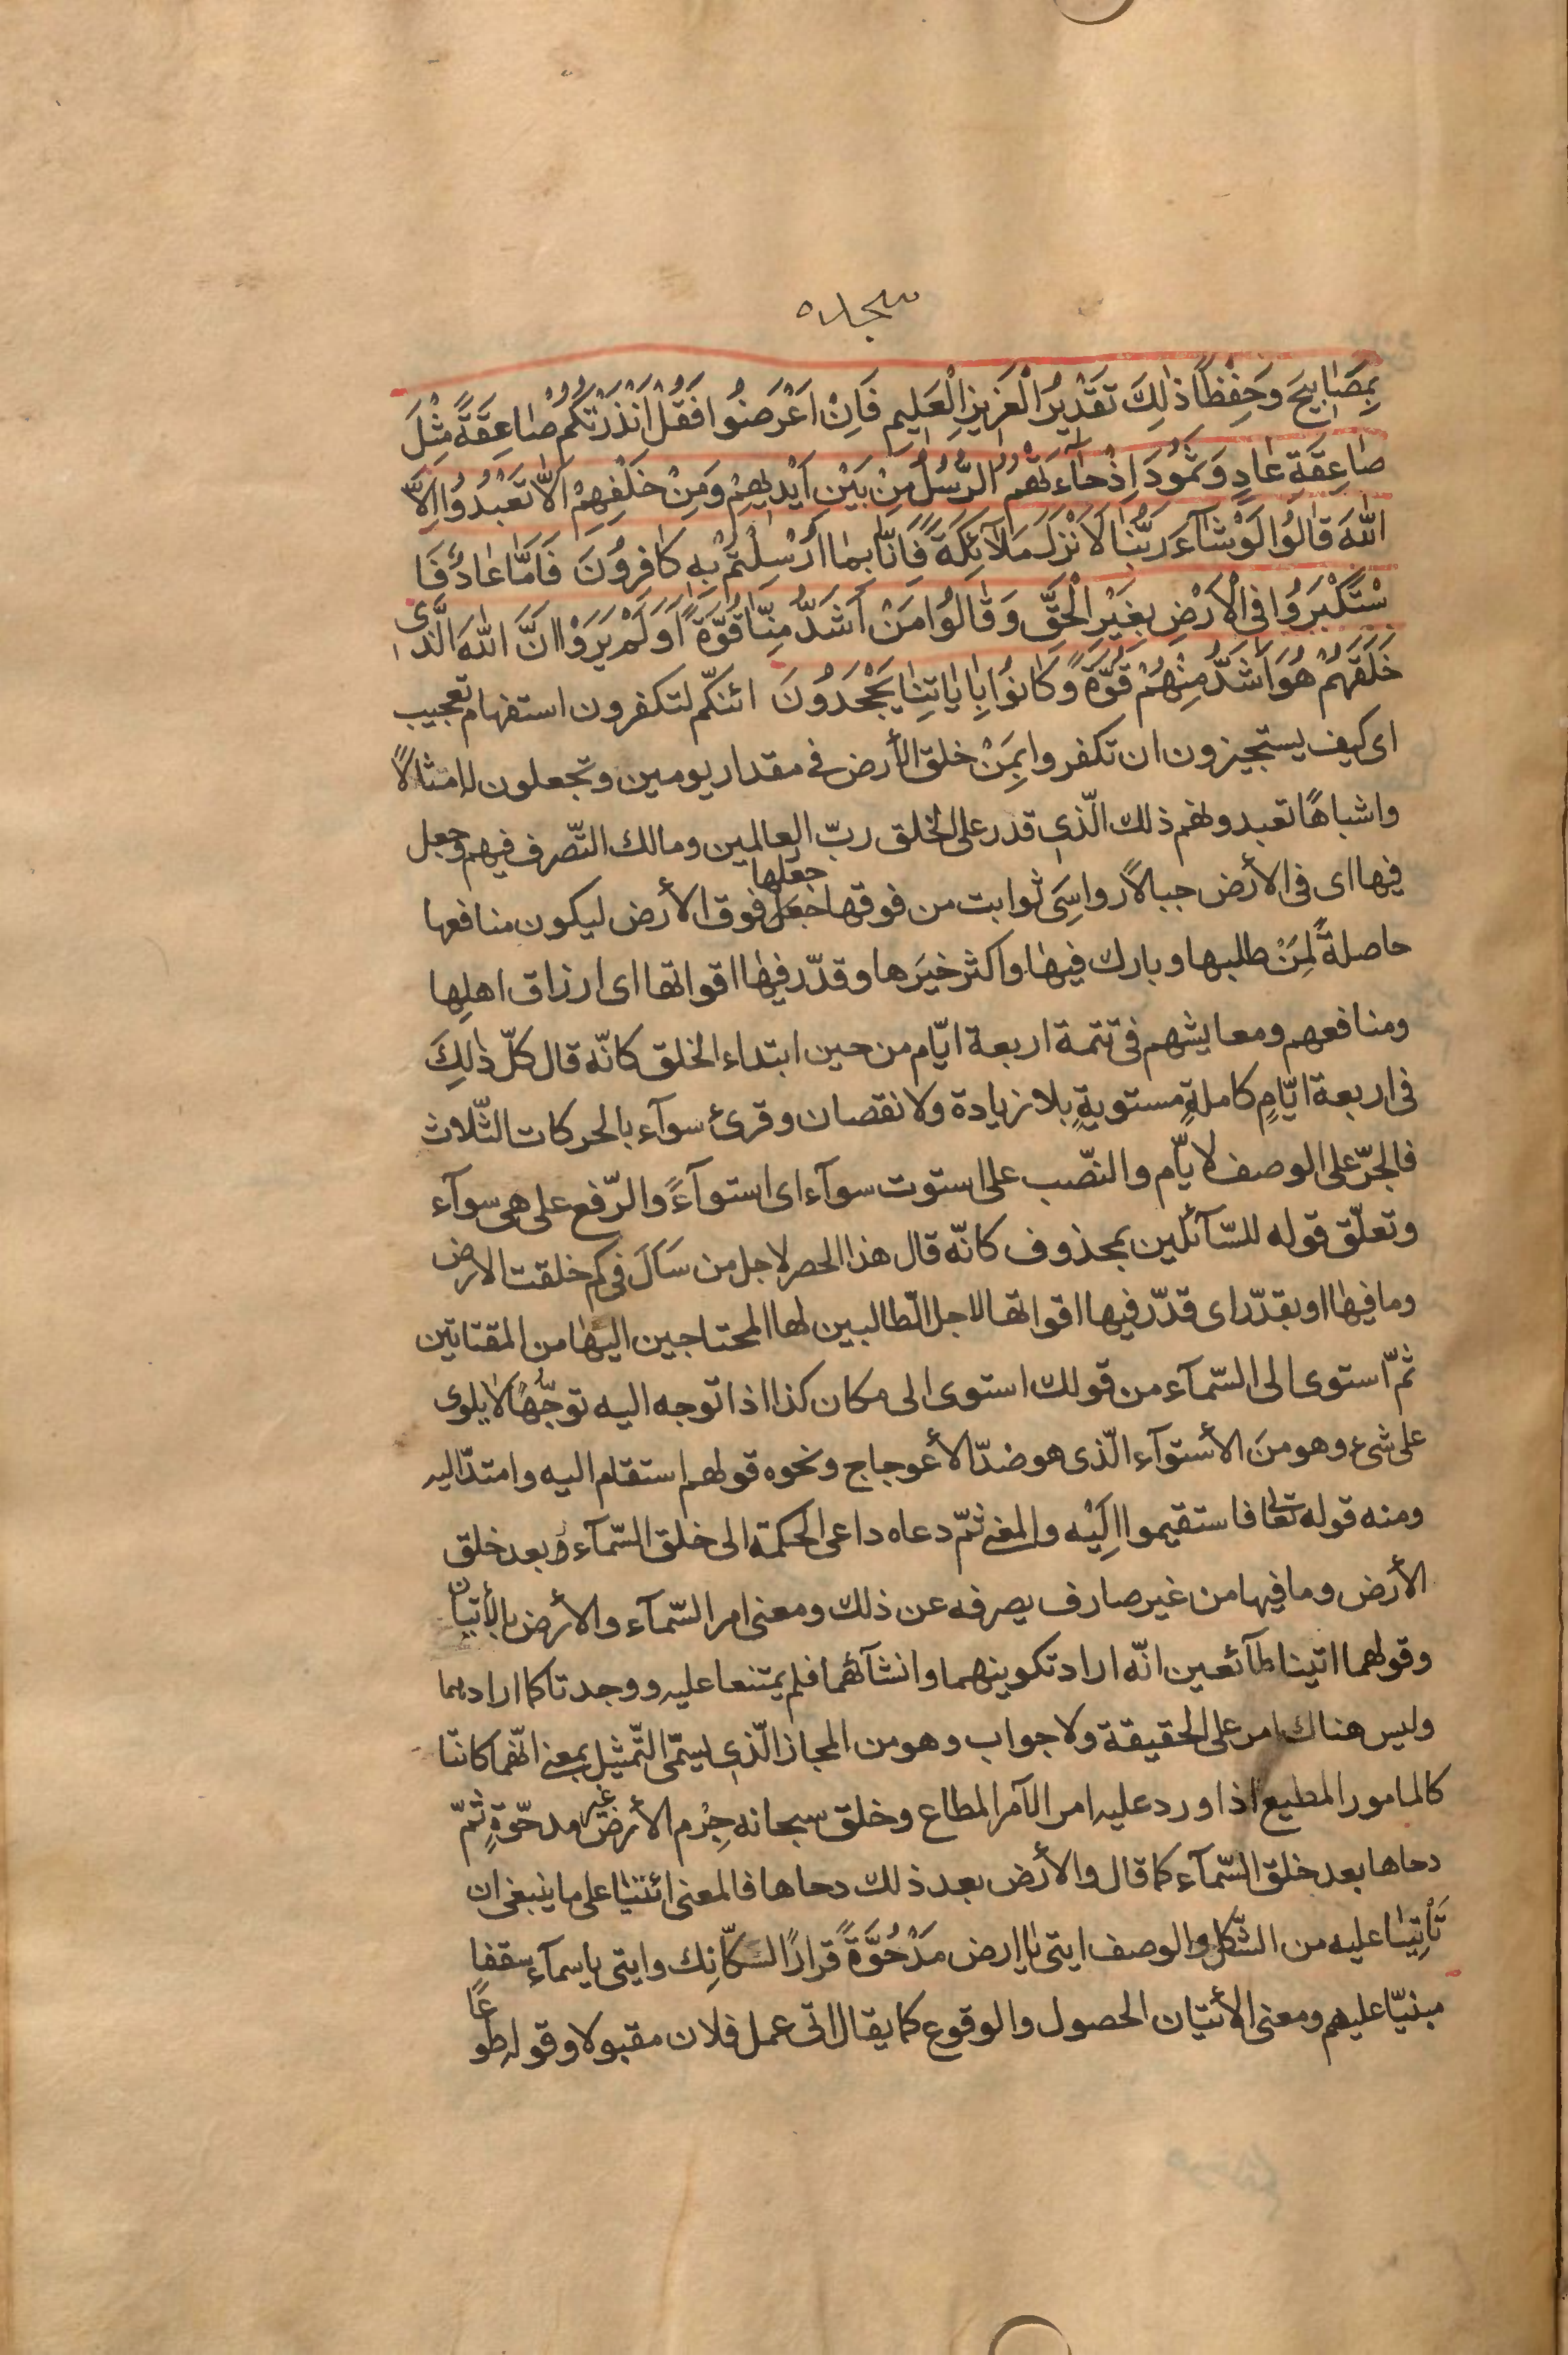 سجده
بِمَصٰابِيحَ وَحِفْظًا ذٰلِكَ تَقْدِيرُ الْعَزِيزِ الْعَلِيمِ فَاِنْ اَعْرَضُوا فَقُلْ اَنْذَرْتُكُمْ صٰاعِقَةً مِثْلَ
صٰاعِقَةِ عٰادٍ وَثَمُودَ اِذْ جٰآءَتْهُمُ الرُّسُلُ مِنْ بَيْنِ اَيْدِيهِمْ وَمِنْ خَلْفِهِمْ اَلّٰا تَعْبُدُوا اِلَّا
اللّٰهَ قٰالُوا لَوْ شٰآءَ رَبُّنٰا لَاَنْزَلَ مَلٰآئِكَةً فَاِنّٰا بِمٰا اُرْسِلْتُمْ بِهِ كٰافِرُونَ فَاَمّٰا عٰادٌ فَا
سْتَكْبَرُوا فِى الْاَرْضِ بِغَيْرِ الْحَقِّ وَقٰالُوا مَنْ اَشَدُّ مِنّٰا قُوَّةً اَوَلَمْ يَرَوْا اَنَّ اللّٰهَ الَّذِى
خَلَقَهُمْ هُوَ اَشَدُّ مِنْهُمْ قُوَّةً وَكٰانُوا بِاٰيٰاتِنٰا يَجْحَدُونَ ائنكم لتكفرون استفهام تعجيب
اى كيف يستجيزون ان تكفروا بِمَنْ خلق الأرض فى مقدار يومين وتجعلون له امثالًا
واشباهًا تعبدونهم ذلك الّذى قدر على الخلق ربّ العالمين ومالك التّصرف فيهم وجعل
فيها اى فى الأرض جبالًا رواسِىَ ثوابت من فوقها جعلها فوق الأرض ليكون منافعها
حاصلةً لِمَنْ طلبها وبارك فيهٰا واكثر خيرَها وقدّر فيهٰا اقواتها اى ارزاق اهلِها
ومنافعهم ومعايشهم فى تتمة اربعة ايّام من حين ابتداء الخلق كانّه قال كلّ ذٰلِكَ
فى اربعة ايّامٍ كاملةٍ مستويةٍ بلا زيادة ولا نقصان وقرئ سوآء بالحركات الثّلاث
فالجرّ على الوصف لايّام والنصّب على استوت سوآء اى استوآءً والرّفع على هى سوآء
وتعلّق قوله للسّآئلين بمحذوف كانّه قال هذا الحصر لاجل من سَاَلَ فى كم خلقت الارض
وما فيهٰا او بقدّر اى قدّر فيها اقواتها لاجل الطّالبين لها المحتاجين اليهٰا من المقتاتين
ثمّ استوى الى السّمآء من قولك استوى الى مكان كذا اذا توجه اليه توجّهًا لا يلوى
على شىء وهو منَ الأستوآء الّذى هو ضدّ الأعوجاج ونحوه قولهم استقام اليه وامتدّ اليه
ومنه قوله تعٰا فاستقيموا اِلَيْه والمعنى ثمّ دعاه داعى الحكمة الى خلق السّمآء بعد خلق
الأرض وما فيها من غير صارف يصرفه عن ذلك ومعنى امر السّمآء والأرض بالأتيان
وقولهما اتينا طآئعين انّه اراد تكوينهما وانشآئهما فلم يمتنعا عليه ووجدتا كما ارادهما
وليس هناك امر على الحقيقة ولا جواب وهو من المجاز الّذى يسمّى التّمثيل بمعنى انّهما كانتا
كالمامور المطيع اذا ورد عليه امر الآمر المطاع وخلق سبحانه جِرْم الأرض غير مدحوّةٍ ثمّ
دحاها بعد خلق السّمآء كما قال والأرض بعد ذلك دحاها فالمعنى ائتيٰا على ما ينبغى ان
تَأتِيٰا عليه من الشّكل والوصف ايتى يٰا ارض مَدْحُوَّةً قرارًا لسكّانِك وايتى يا سمآء سقفا
مبنيّا عليهم ومعنى الأتيان الحصول والوقوع كما يقال اتى عمل فلان مقبولا وقوله طوعًا